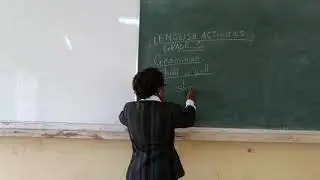 ENGLISH ACTIVITIES
GRADE
Grammar
shall or will